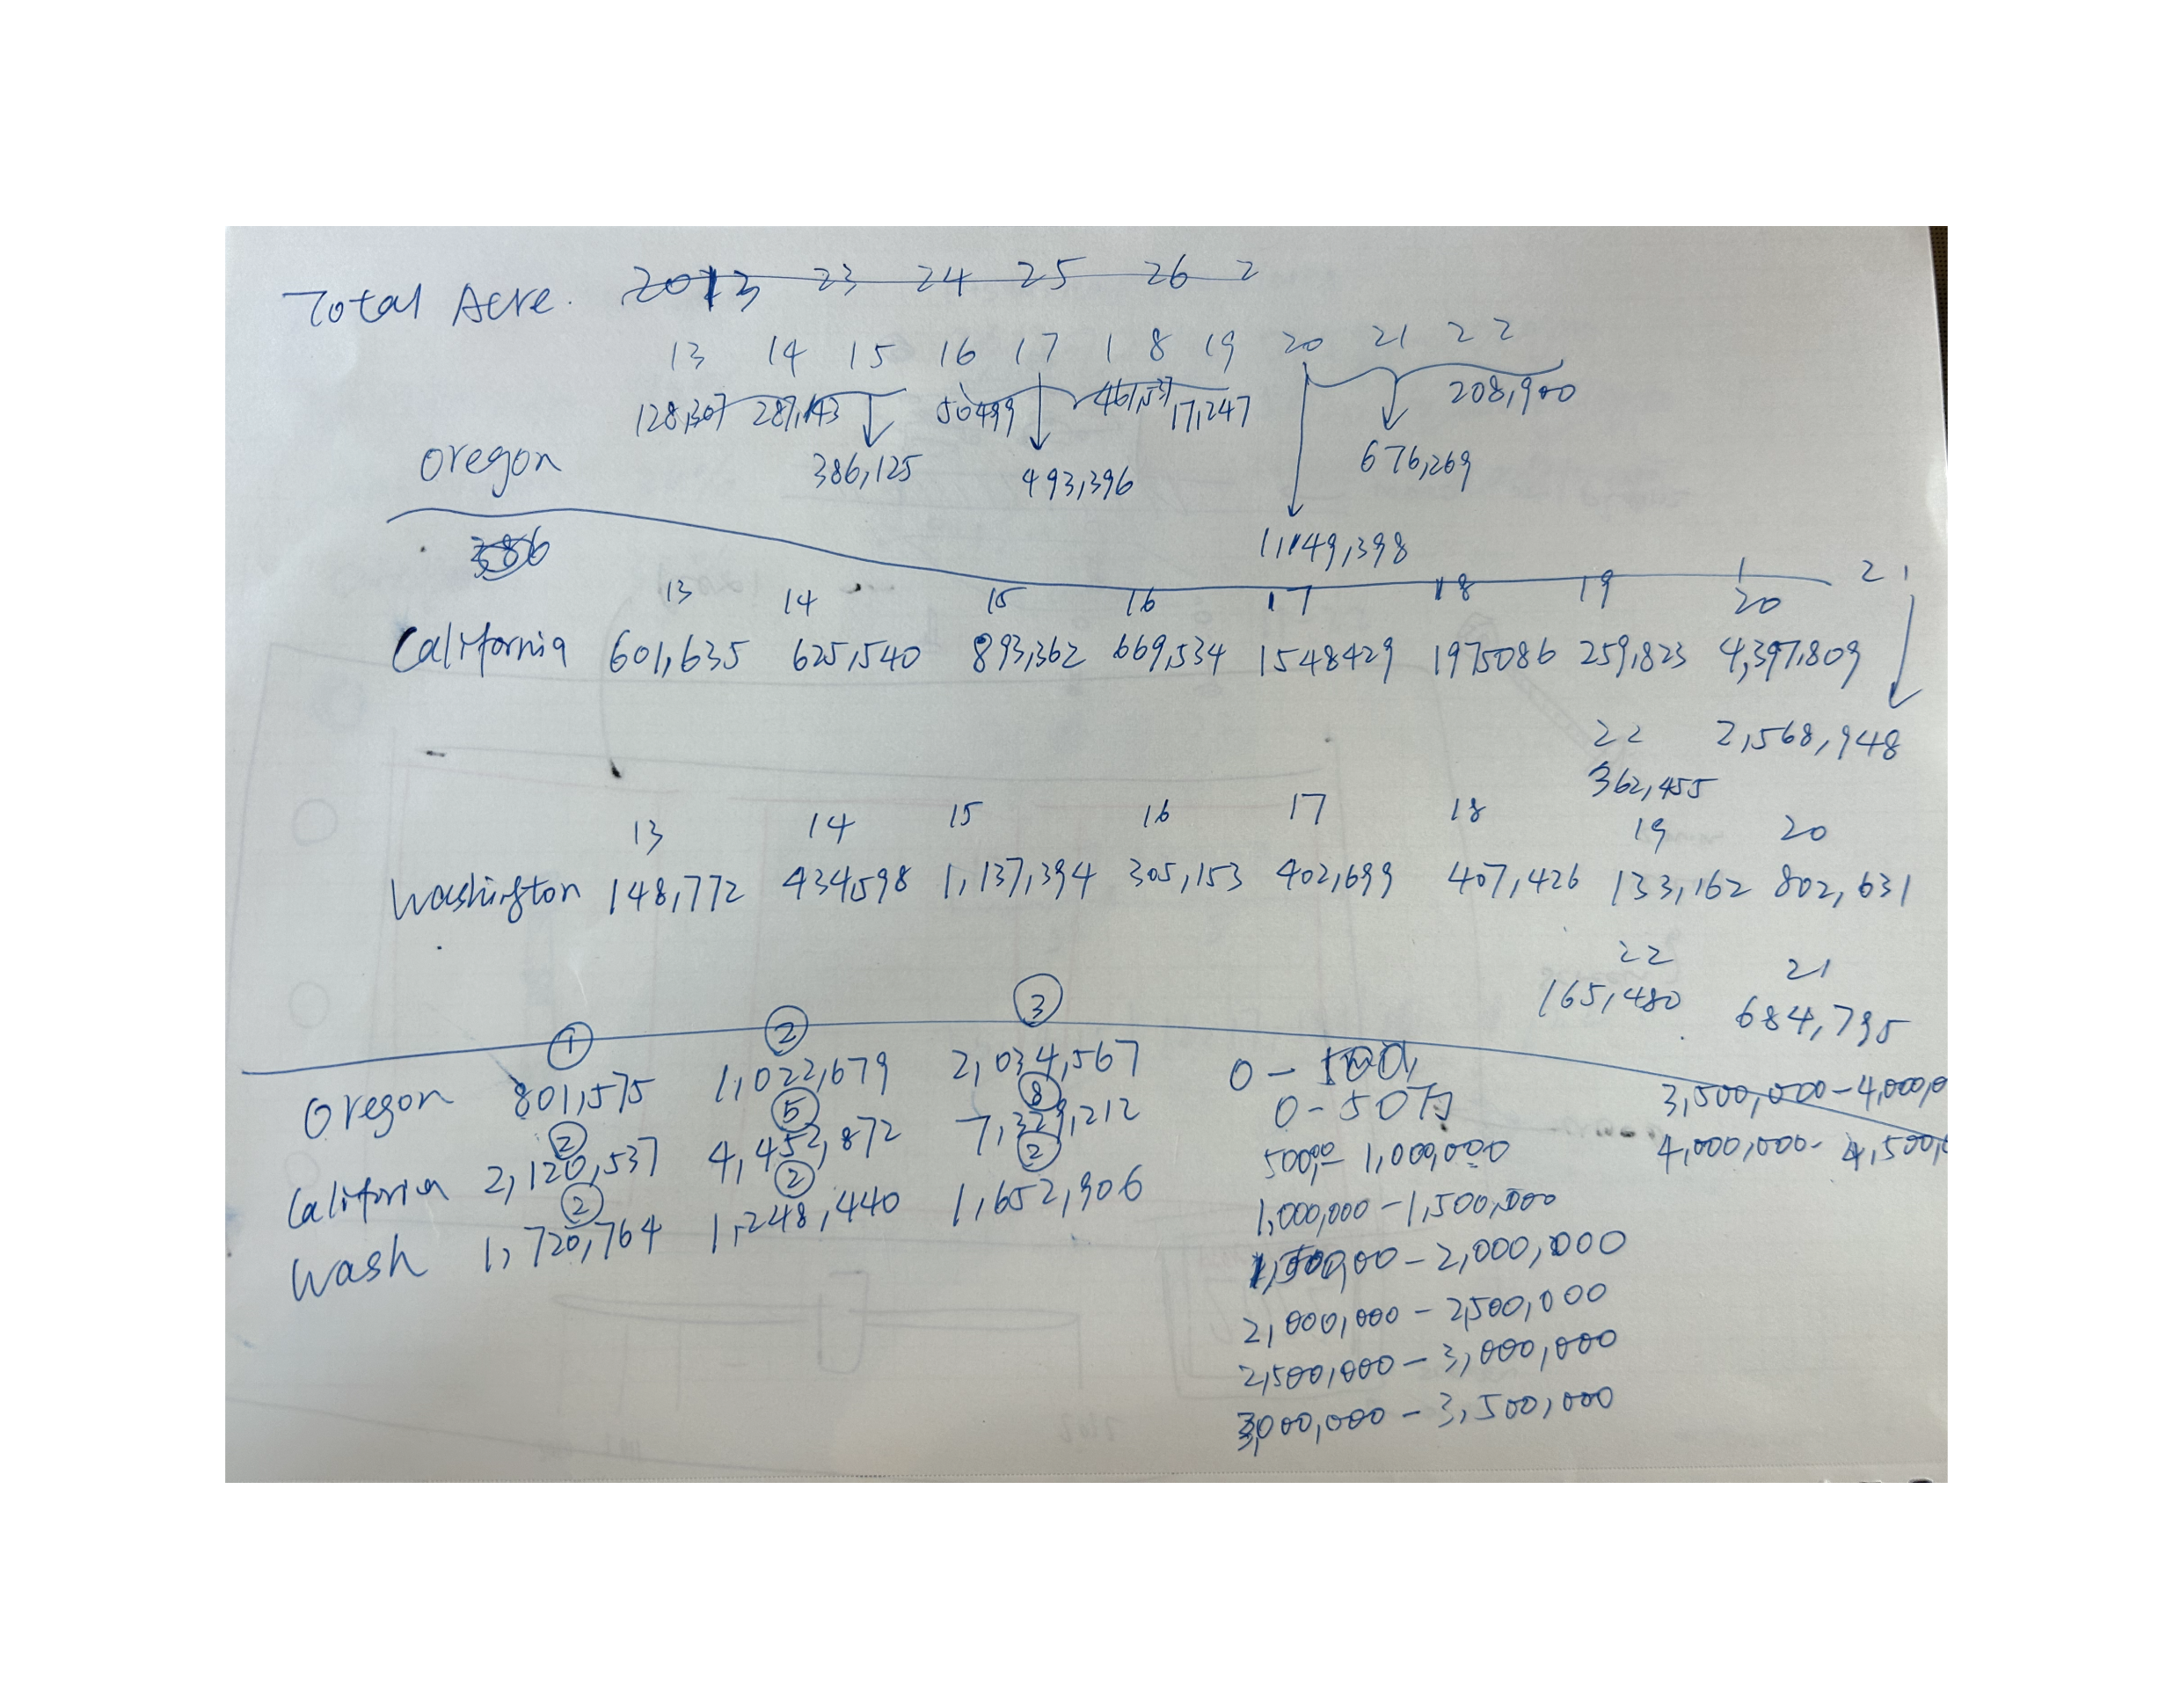 Total Acre. 2013 23 24 25 26 2
13 14 15 16 17 18 19 20 21 22
128,307 287,143 50499 461,537 17,247 208,900
Oregon 386,125 493,396 676,269
386 1,149,398
13 14 15 16 17 18 19 20 21
California 601,635 625,540 893,362 669,534 1548429 1975086 259,823 4,397,809
22 2,568,948
362,455
13 14 15 16 17 18 19 20
Washington 148,772 434,598 1,137,394 305,153 402,699 407,426 133,162 802,631
22 21
165,480 684,795
① ② ③
Oregon 801,575 1,022,679 2,034,567
② ⑤ ⑧
California 2,120,537 4,452,872 7,329,212
② ② ②
Wash 1,720,764 1,248,440 1,652,906
0 -
0 - 50万
500,00 - 1,000,000
1,000,000 - 1,500,000
1,500,00 - 2,000,000
2,000,000 - 2,500,000
2,500,000 - 3,000,000
3,000,000 - 3,500,000
3,500,000 - 4,000,0
4,000,000 - 4,500,0